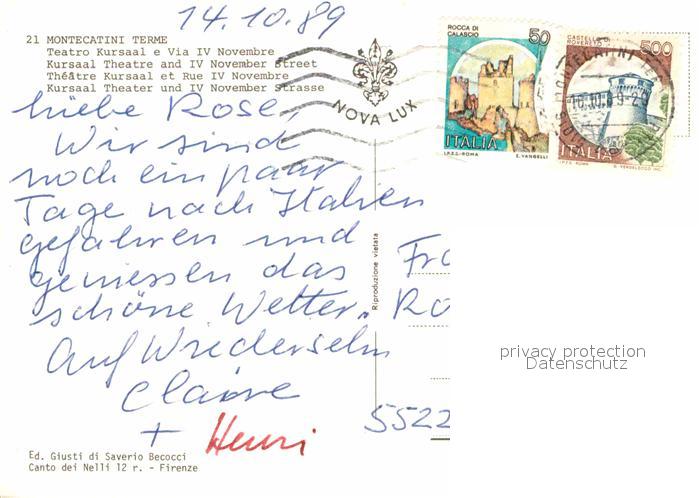 14.10.89
21 MONTECATINI TERME
Teatro Kursaal e Via IV Novembre
Kursaal Theatre and IV November Street
Théâtre Kursaal et Rue IV Novembre
Kursaal Theater und IV November Strasse
NOVA LUX
ROCCA DI
CALASCIO
50
ITALIA
I.P.Z.S.-ROMA E. VANGELLI
CASTELLO DI
ROVERETO
500
ITALIA
I.P.Z.S. ROMA
liebe Rose,
Wir sind
noch ein paar
Tage nach Italien
gefahren und
geniessen das
schöne Wetter.
Auf Wiedersehn
Claire
+ Henri
Riproduzione vietata
Fra
Ro
5522
privacy protection
Datenschutz
Ed. Giusti di Saverio Becocci
Canto dei Nelli 12 r. - Firenze